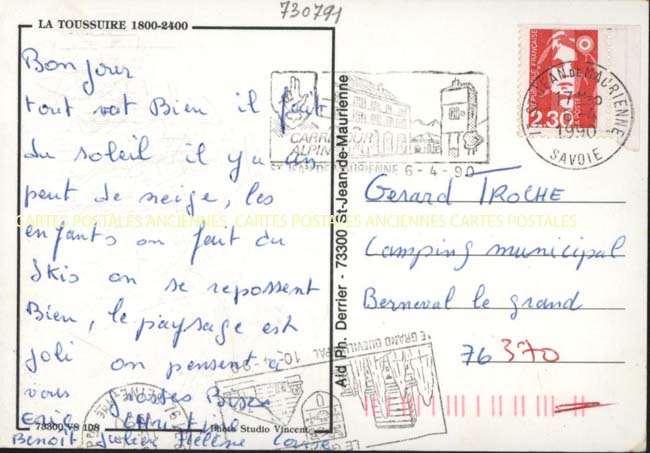 730791
LA TOUSSUIRE 1800-2400
Bonjour
tout vat Bien il fait
du soleil il y a un
peut de neige, les
enfants on fait du
skis on se repossent
Bien, le paysage est
joli on pensent à
vous grosses Bises
Eric Christine
Benoit Julien Hélène Louise
73300 VS 108
Photo Studio Vincent
Ald Ph. Derrier - 73300 St-Jean-de-Maurienne
CARREFOUR
ALPIN
ST JEAN DE MAURIENNE 6-4-90
REPUBLIQUE FRANÇAISE
2.30
LA POSTE
ST JEAN DE MAURIENNE
1990
SAVOIE
Gerard TROCHE
Camping municipal
Berneval le grand
76 370
LE GRAND QUEVILLY PAL
10-4
LE G
CARTES POSTALES ANCIENNES CARTES POSTALES ANCIENNES CARTES POSTALES